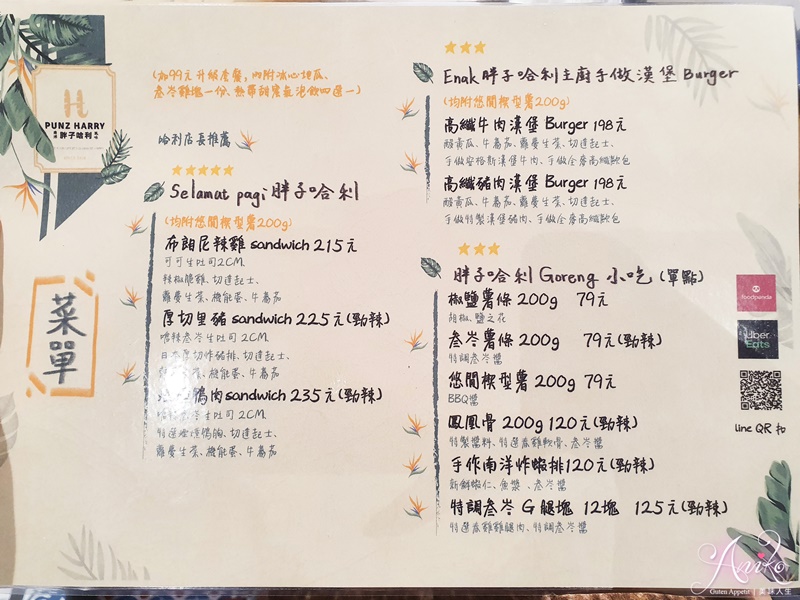 PUNZ HARRY
胖子哈利
菜單
(加99元升級套餐,內附冰心地瓜、
叁峇雞塊一份、熱帶甜蜜氣泡飲四選一)
哈利店長推薦
Selamat pagi 胖子哈利
(均附悠閒楔型薯200g)
布朗尼辣雞 sandwich 215元
可可生吐司2CM、
辣椒脆雞、切達起士、
蘿蔓生菜、機能蛋、牛蕃茄
厚切里豬 sandwich 225元(勁辣)
嗆辣叁峇生吐司2CM、
日式厚切炸豬排、切達起士、
機能蛋、牛蕃茄
鴨肉sandwich 235元(勁辣)
生吐司2CM、
特選煙燻鴨胸、切達起士、
蘿蔓生菜、機能蛋、牛蕃茄
Enak胖子哈利主廚手做漢堡 Burger
(均附悠閒楔型薯200g)
高纖牛肉漢堡 Burger 198元
酸黃瓜、牛蕃茄、蘿蔓生菜、切達起士、
手做安格斯漢堡牛肉、手做全麥高纖軟包
高纖豬肉漢堡 Burger 198元
酸黃瓜、牛蕃茄、蘿蔓生菜、切達起士、
手做特製漢堡豬肉、手做全麥高纖軟包
胖子哈利 Goreng 小吃(單點)
椒鹽薯條 200g 79元
胡椒、鹽之花
叁峇薯條 200g 79元(勁辣)
特調叁峇醬
悠閒楔型薯 200g 79元
BBQ醬
鳳凰骨 200g 120元(勁辣)
特製醬料、特選春雞軟骨、叁峇醬
手作南洋炸蝦排120元(勁辣)
新鮮蝦仁、魚漿、叁峇醬
特調叁峇G腿塊 12塊 125元(勁辣)
特選春雞雞腿肉、特調叁峇醬
foodpanda
Uber
Eats
line QR扣
Aniko
Guten Appetit | 美味人生